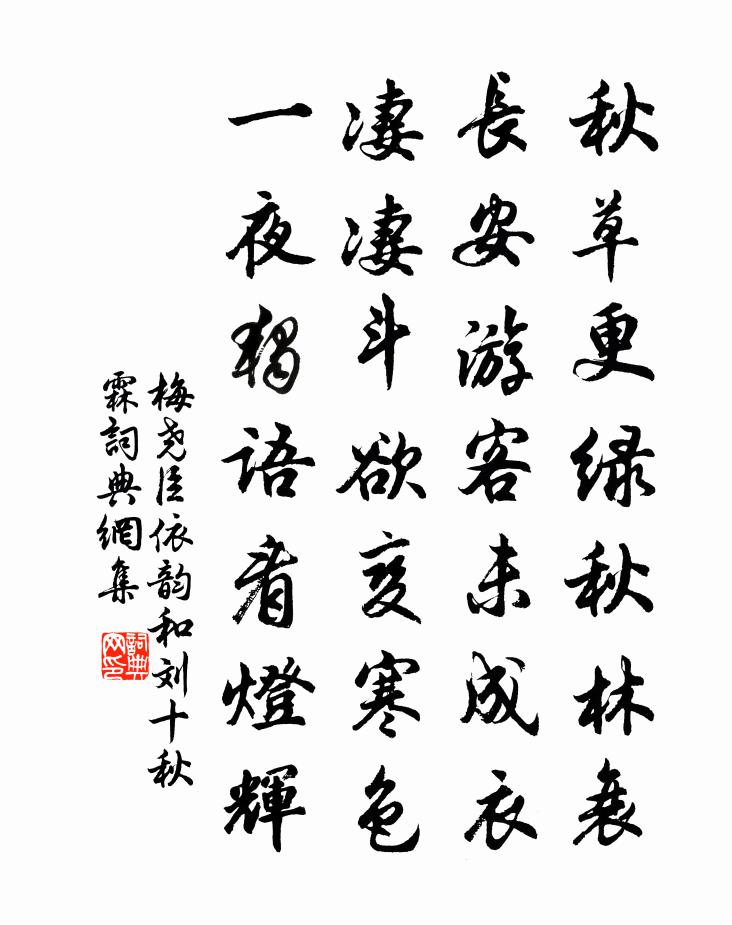 秋草更绿秋林衰
長安游客未成衣
凄凄斗欲变寒色
一夜獨语看燈輝
梅尧臣依韵和刘十秋
霖詞典網集
詞典网印